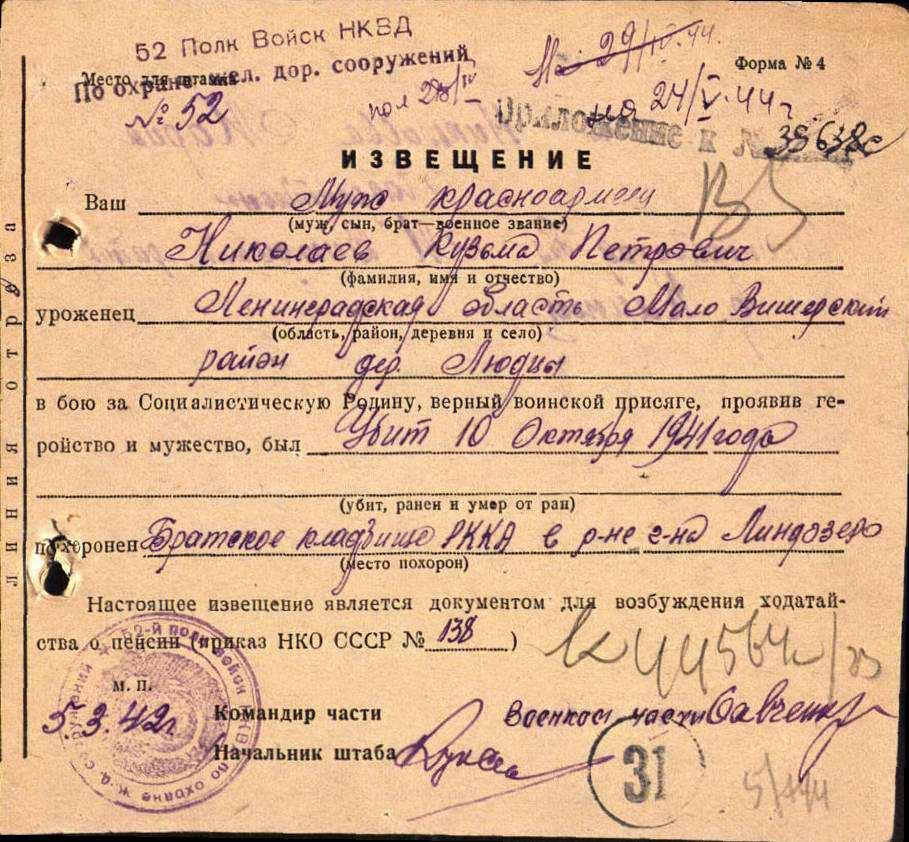 52 Полк Войск НКВД
По охране жел. дор. сооружений
Место для штампа
№ 52
На 29/IV.44.
Форма № 4
на 24/V.44г
Приложение к №
38638с
ИЗВЕЩЕНИЕ
Ваш Муж красноармеец
(муж, сын, брат—военное звание)
Николаев Кузьма Петрович
(фамилия, имя и отчество)
уроженец Ленинградская область Мало Вишерский
(область, район, деревня и село)
район дер. Людцы
в бою за Социалистическую Родину, верный воинской присяге, проявив ге-
ройство и мужество, был Убит 10 Октября 1941 года
(убит, ранен и умер от ран)
похоронен Братское кладбище РККА в р-не с-на Линдозеро
(место похорон)
Настоящее извещение является документом для возбуждения ходатай-
ства о пенсии (приказ НКО СССР № 138)
м. п.
5.3.42г
Командир части
Военком части Савченко
Начальник штаба
31
линия отреза